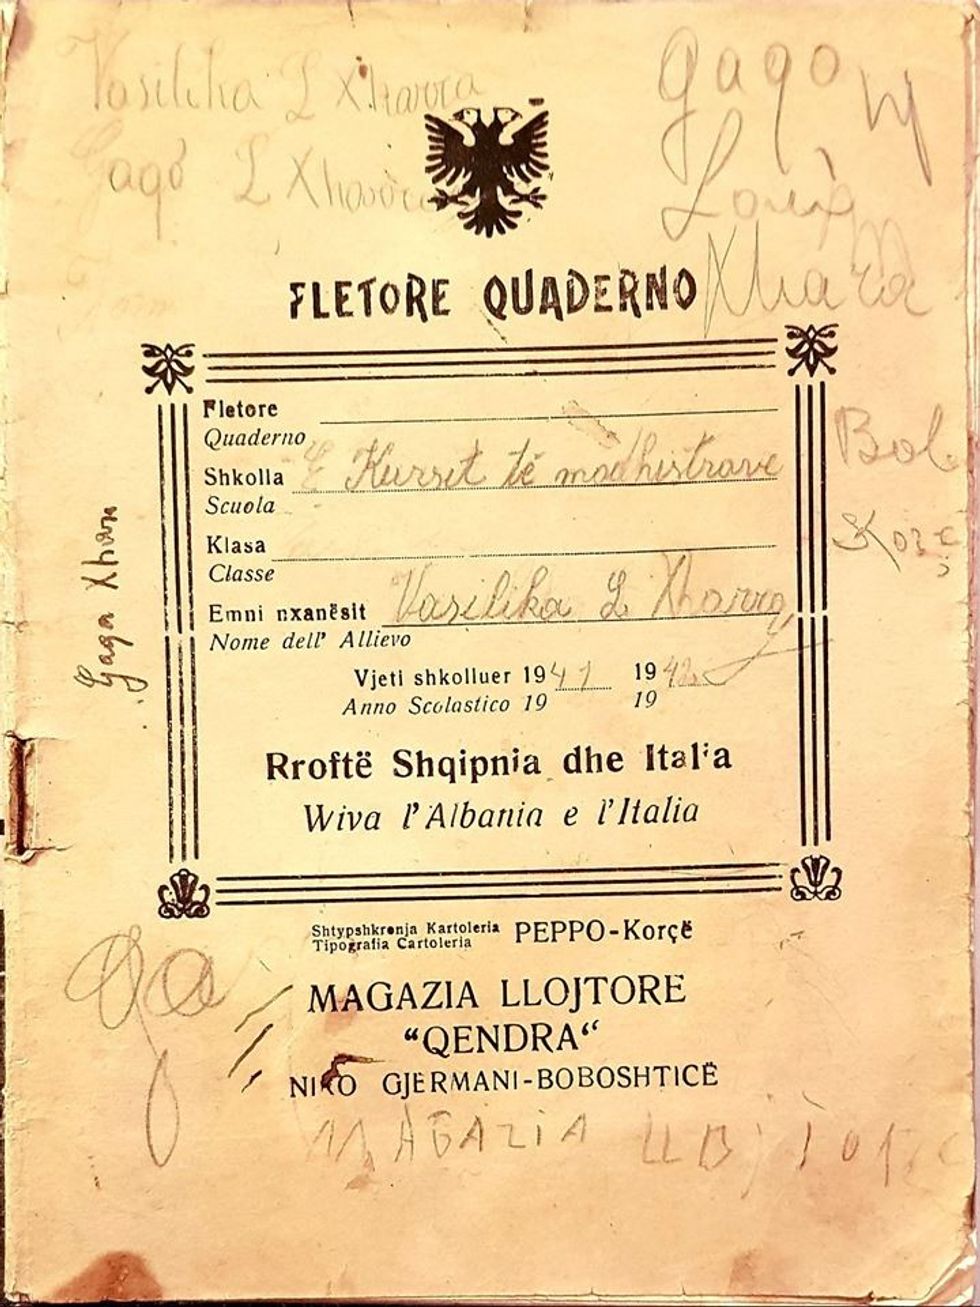 Vasilika L Xharra
Gago L Xharra
Gago
Xharra
FLETORE QUADERNO
Fletore
Quaderno
Shkolla E Kursit të madhistrave
Scuola
Klasa
Classe
Emni nxanësit Vasilika L Xharra
Nome dell' Allievo
Vjeti shkolluer 1941 1942
Anno Scolastico 19 19
Rroftë Shqipnia dhe Italia
Wiva l'Albania e l'Italia
Bob
Korç
Gaga Xhar
Shtypshkronja Kartoleria
Tipografia Cartoleria
PEPPO-Korçë
MAGAZIA LLOJTORE
“QENDRA“
NIKO GJERMANI-BOBOSHTICË
Ga
MAGAZIA